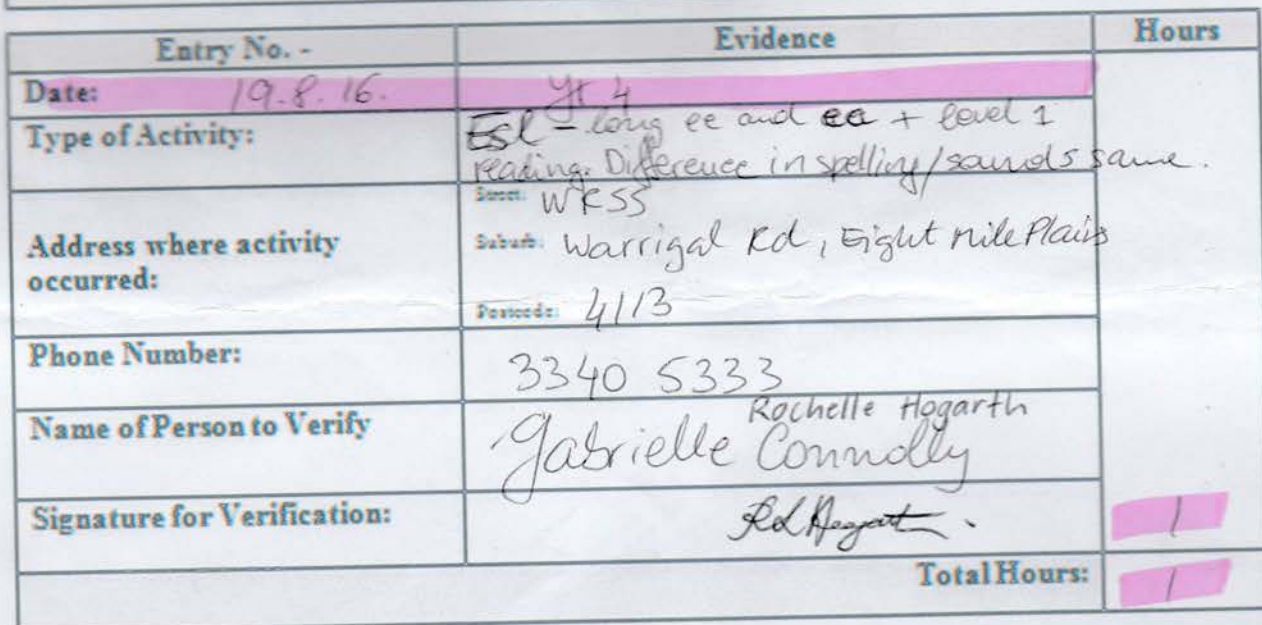 Entry No. - Evidence Hours
Date: 19.8.16. Yr 4
Type of Activity: Esl - long ee and ea + level 1
reading. Difference in spelling/sounds same.
Street: WRSS
Address where activity occurred: Suburb: Warrigal Rd, Eight Mile Plains
Postcode: 4113
Phone Number: 3340 5333
Rochelle Hogarth
Name of Person to Verify Gabrielle Connolly
Signature for Verification: 1
Total Hours: 1